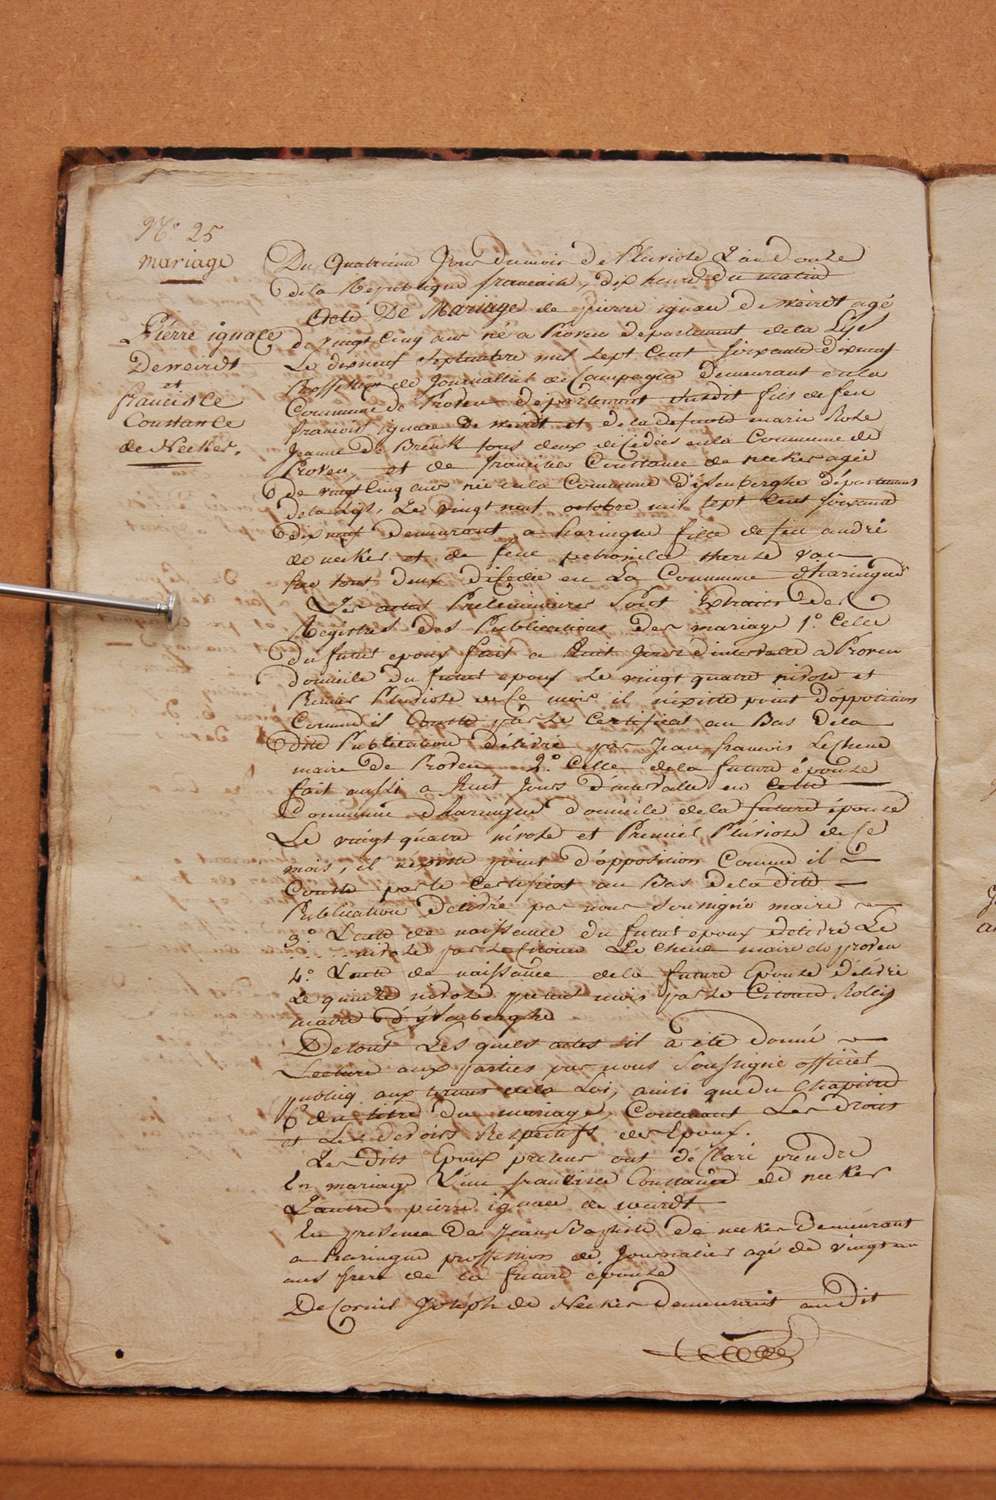 N.° 25
mariage
Pierre ignace
Deweirdt
et
francisce
Constance
de Necker.
Du Quatrieme Jour du mois de Pluviose L'an douze
de la Republique francaise, dix heure du matin
Acte De Mariage de pierre ignace De weirdt agé
de vingt Cinq ans né a Proven departement de la Lys
Le dixneuf septembre mil sept Cent soixante dixneuf
Proffession de Journallier de Campagne demeurant en la
Commune de Proven departement susdit fils de feu
francois ignace De weirdt et de la defunte marie Rose
Jeanne De Brenk tous deux décédées en la Commune de
Proven, et de francisce Constance de necker agée
de vingt Cinq ans née en la Commune d'isenberghe département
de la Lys, Le vingt neuf octobre mil sept Cent soixante
dix neuf demeurant a haringue fille de feu andré
de necker et de feue petronille therese van
tout deux décédée en La Commune d'haringue
Les actes Preliminaires Sont Extraits des
Registres des Publications Des mariage 1.° Celle
du futur epoux fait a huit Jours d'intervalle a Proven
domicile du futur epoux Le vingt quatre nivose et
Premier Pluviose de Ce mois il n'existe point d'opposition
Comme il Conste par Le Certificat au Bas de la
dite Publication délivré par Jean francois Lechene
maire de Proven 2.° Celle de la future épouse
fait aussi a huit Jours d'intervalle en Cette
Commune d'haringue domicile de la future épouse
Le vingt quatre nivose et Premier Pluviose de Ce
mois, il n'existe point d'opposition Comme il
Conste par le Certificat au Bas de la dite
Publication Delivré par nous soussigné maire
3.° L'acte de naissance du futur epoux délivré Le
nivose par Le Citoien Le chene maire de proven
4.° L'acte de naissance de la future Epouse délivré
Le quinze nivose meme mois par Le Citoien
maire d'ysenberghe
De tout Les quels actes il a été donné
Lecture aux parties par nous Soussigné officier
publiq aux termes de la Loi, ainsi que du Chapitre
6.e du titre du mariage, Contenant Les Droits
et Les Devoirs Respectifs des Epoux.
Les dits Epoux presens ont déClaré prendre
En mariage L'une francisce Constance de necker
L'autre pierre ignace de weirdt
En presence De Jean Baptiste de necker demeurant
a haringue proffession de Journalier agé de vingt un
ans frere de la future épouse
De Cornil Joseph de Necker Demeurant audit